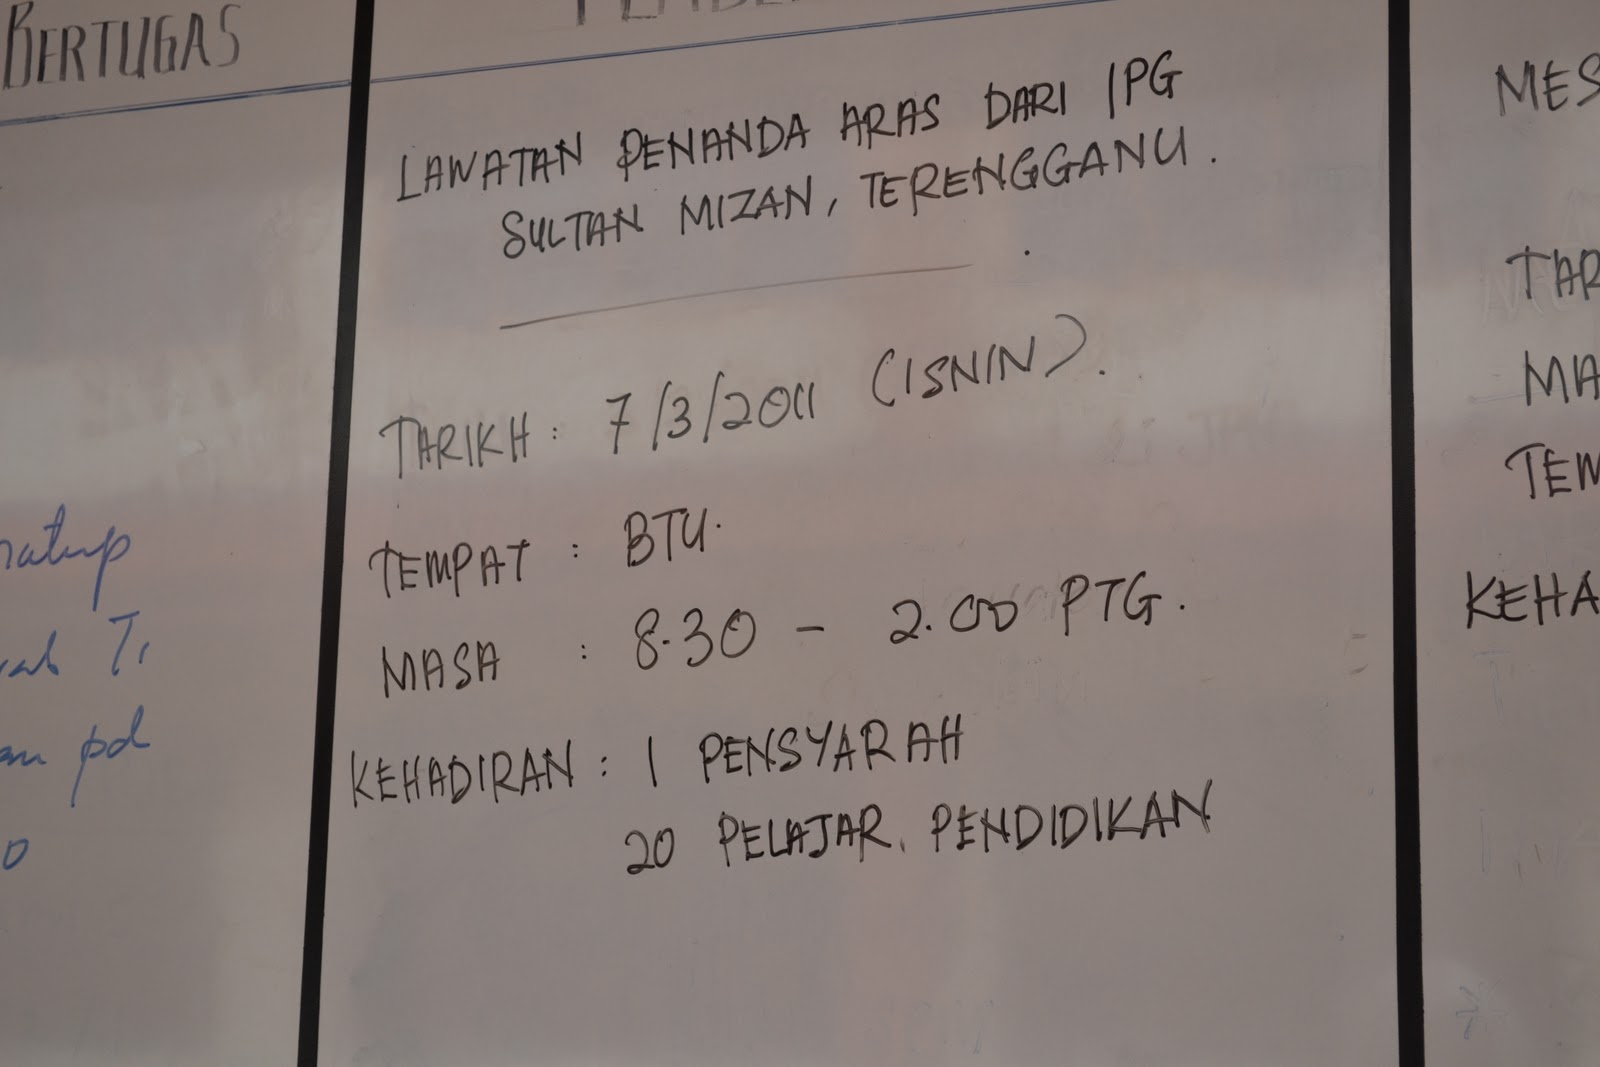 BERTUGAS
LAWATAN PENANDA ARAS DARI IPG
SULTAN MIZAN, TERENGGANU.
TARIKH : 7/3/2011 (ISNIN).
TEMPAT : BTU.
MASA : 8.30 - 2.00 PTG.
KEHADIRAN : 1 PENSYARAH
20 PELAJAR. PENDIDIKAN
pd
MES
TAR
MA
TEM
KEHA